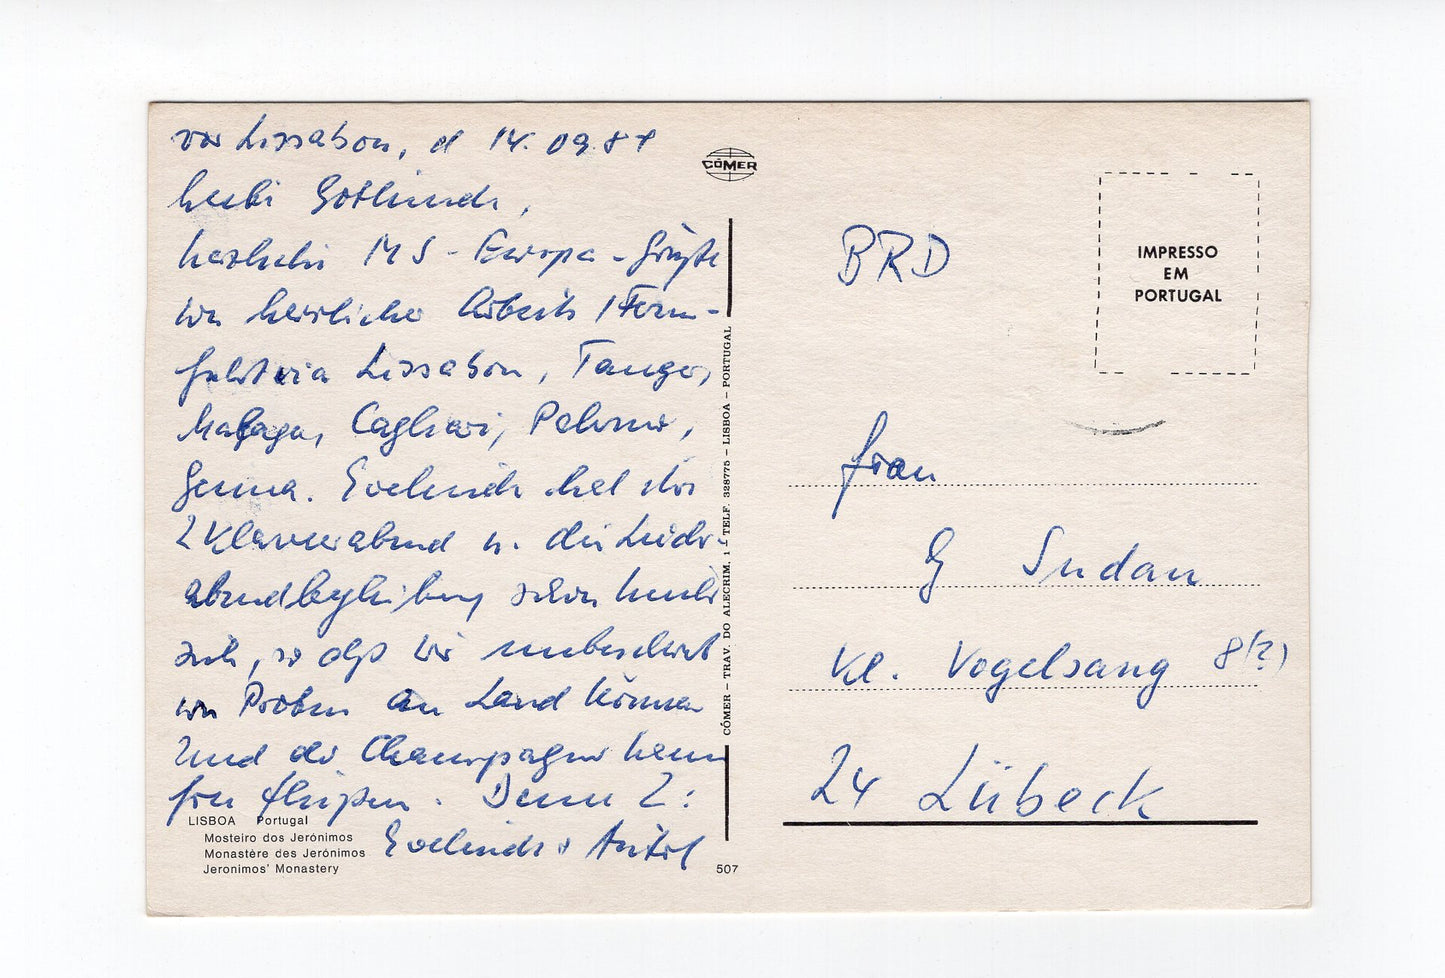 vor Lissabon, d 14.09.81
Liebe Gotlinde,
herzliche MS-Europa-Grüße
von herrlicher Arbeits / Ferien-
fahrt via Lissabon, Tanger,
Malaga, Cagliari, Palermo,
Genua. Evelinde hat die
2 Klavierabend u. die Lieder-
abendbegleitung schon hinter
sich, so daß wir unbeschwert
von Proben an Land können
und der Champagner kann
frei fließen. Deine 2:
Evelinde + Anatol
LISBOA Portugal
Mosteiro dos Jerónimos
Monastère des Jerónimos
Jeronimos' Monastery
507
CÓMER
CÓMER – TRAV. DO ALECRIM, 1 – TELF. 328775 – LISBOA – PORTUGAL
IMPRESSO
EM
PORTUGAL
BRD
Frau
G Sudau
Kl. Vogelsang 8(?)
24 Lübeck